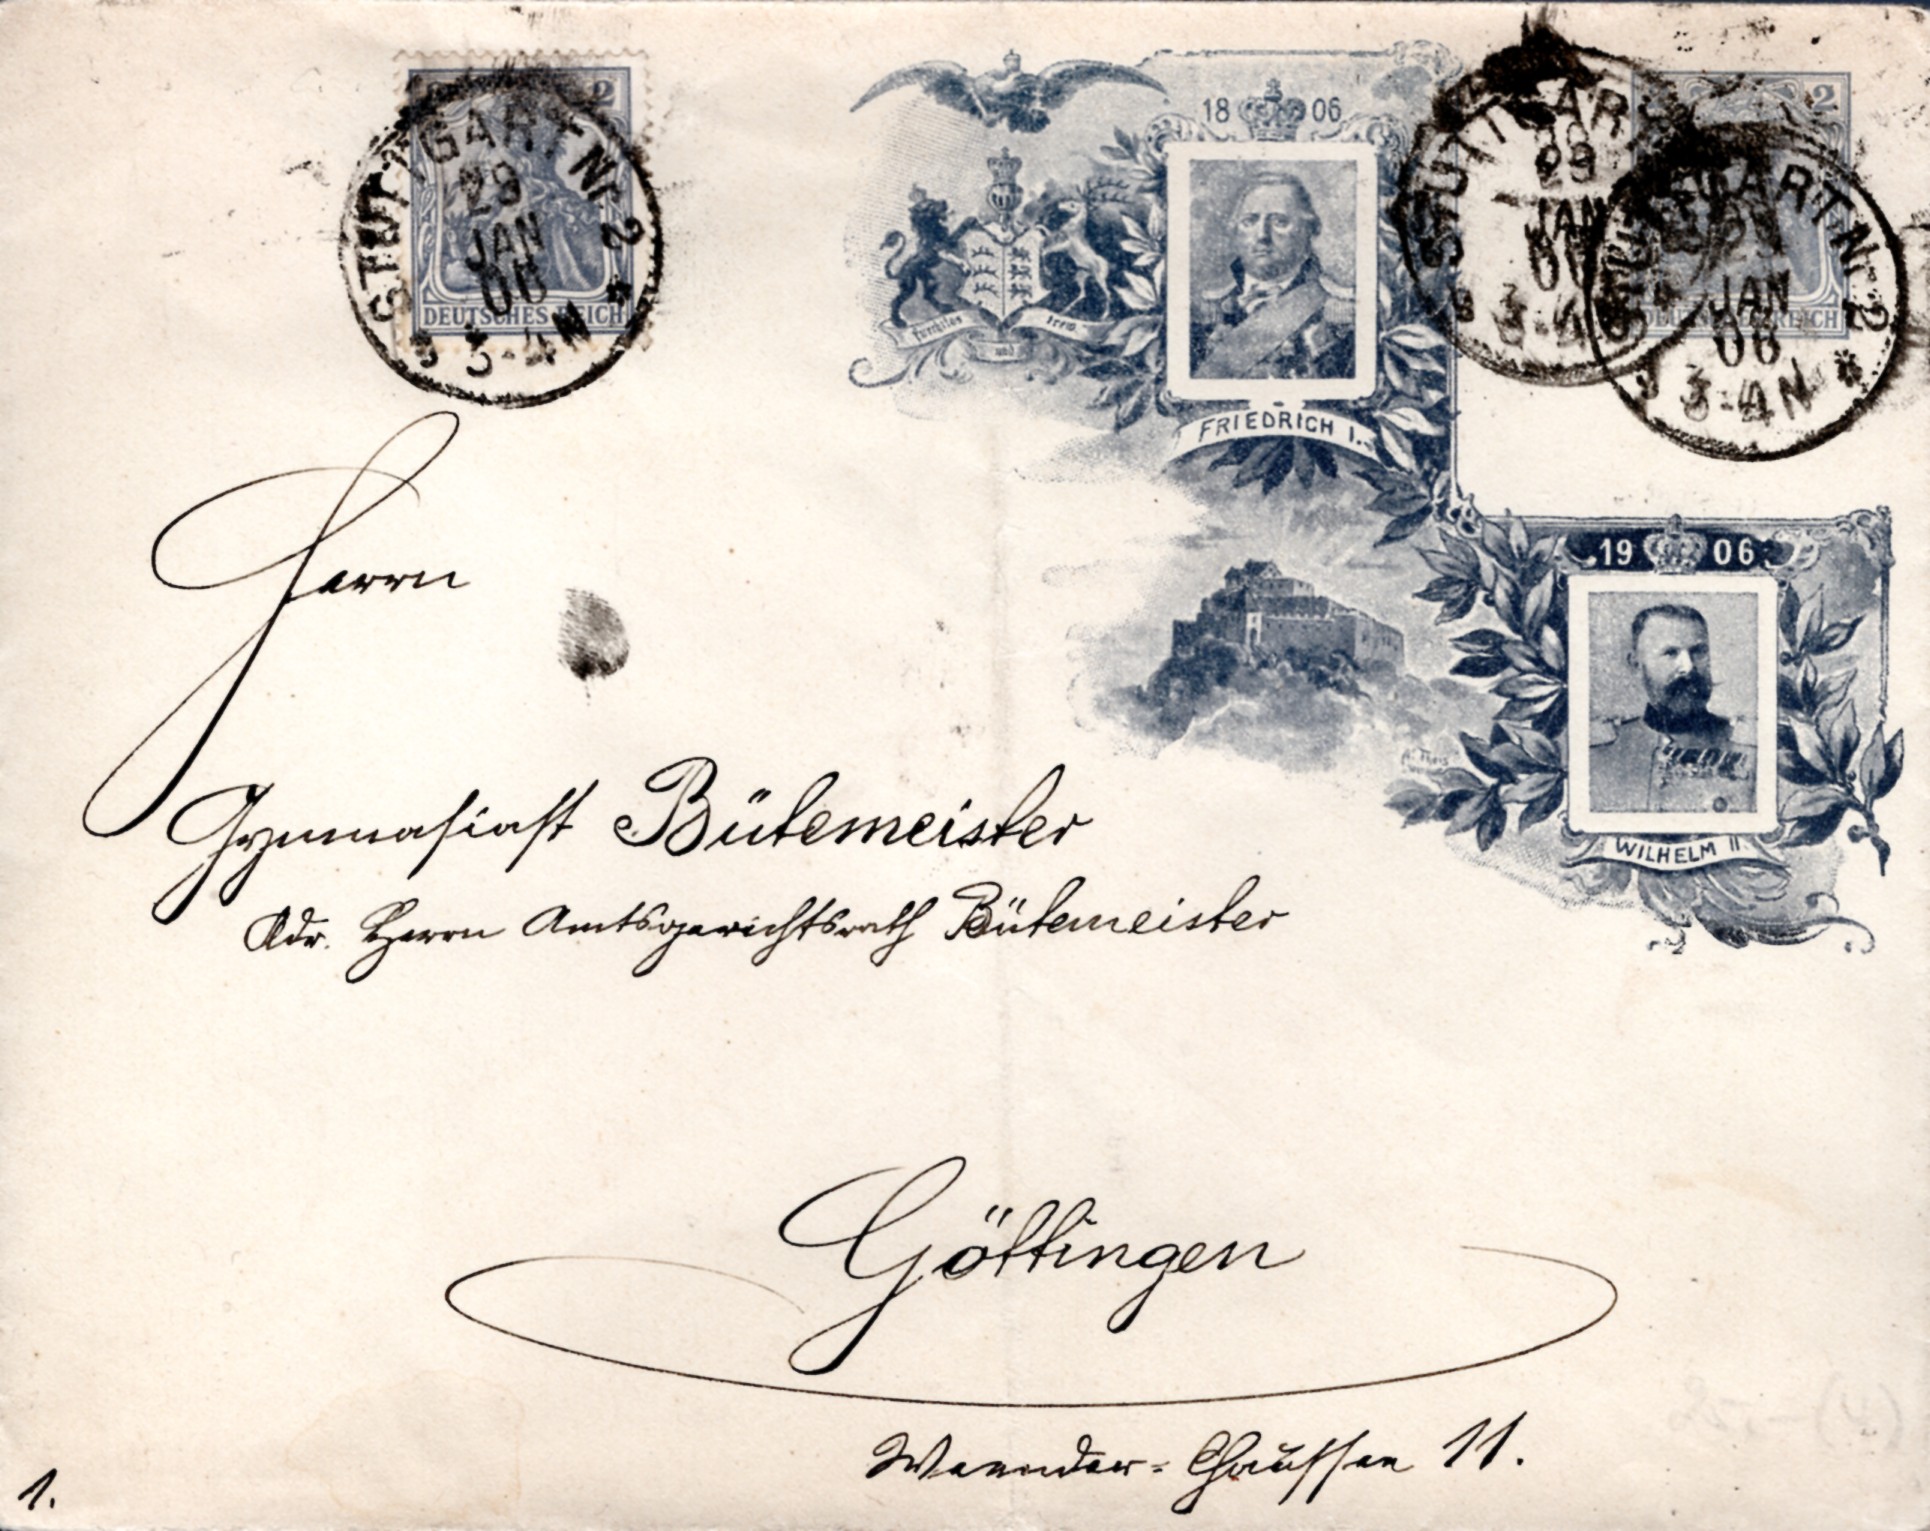 2
DEUTSCHES REICH
STUTTGART Nr. 2
29
JAN
06
3-4N
18 06
Furchtlos und trew
FRIEDRICH I.
STUTTGART
29
JAN
06
3-4
2
DEUTSCHES REICH
STUTTGART Nr. 2
29
JAN
06
3-4N
19 06
WILHELM II
Herrn
Gymnasiast Bütemeister
Adr. Herrn Amtsgerichtsrath Bütemeister
Göttingen
Weender-Chaussee 11.
1.